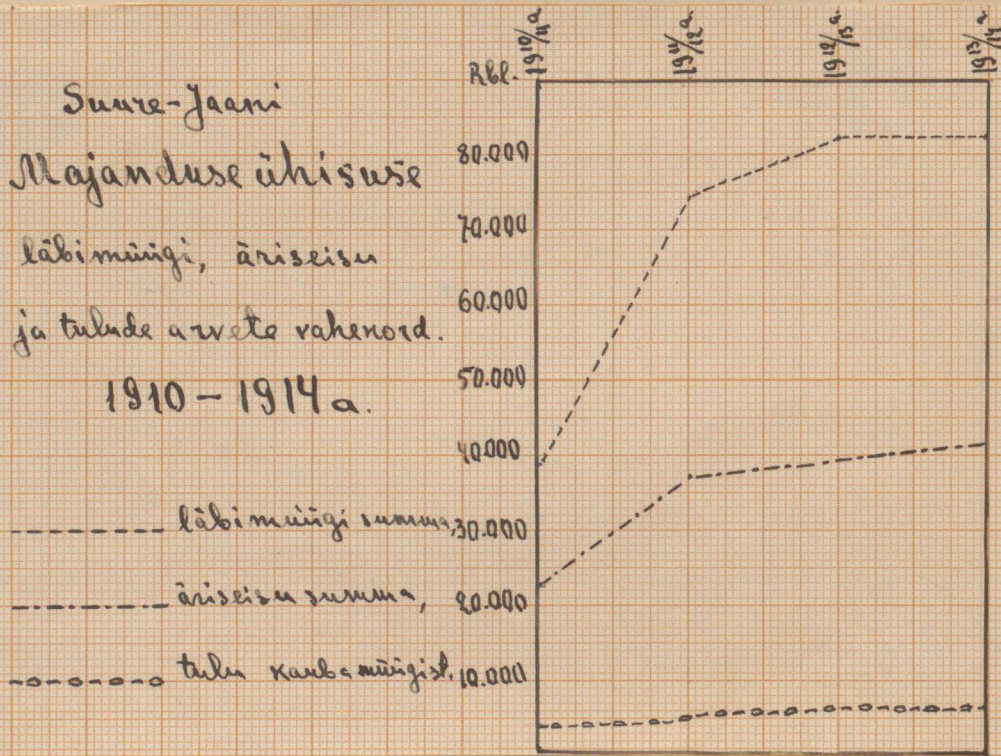 Suure-Jaani
Majanduse ühisuse
läbimüügi, äriseisu
ja tulude arvete vahekord.
1910 – 1914 a.
läbimüügi summa,
äriseisu summa,
tulu kaubamüügist.
Rbl.
1910/11 a.
1911/12 a.
1912/13 a.
1913/14 a.
80.000
70.000
60.000
50.000
40.000
30.000
20.000
10.000